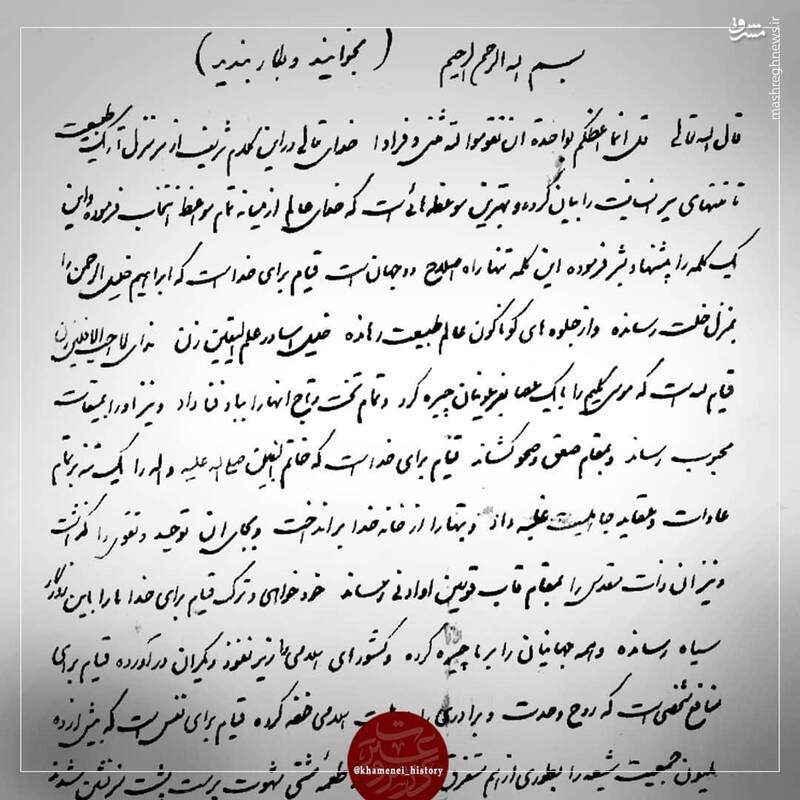 بسم الله الرحمن الرحیم (بخوانید و بکار بندید)
قال الله تعالی قل انما اعظکم بواحدة ان تقوموا لله مثنی و فرادا خدای تعالی در این کلام شریف از سر منزل تاریک طبیعت
تا منتهای سیر انسانیت را بیان کرده و بهترین موعظه هائی است که خدای عالم از میانه تمام مواعظ انتخاب فرموده و این
یک کلمه را پیشنهاد بشر فرموده این کلمه تنها راه اصلاح دو جهان است قیام برای خدا است که ابراهیم خلیل الرحمن را
بمنزل خلت رسانده و از جلوه های گوناگون عالم طبیعت رهانده خلیل آسا در علم الیقین زن ندای لا احب الافلین زن
قیام لله است که موسی کلیم را با یک عصا بفرعونیان چیره کرد و تمام تخت و تاج آنها را بباد فنا داد و نیز او را بمیقات
محبوب رساند و بمقام صعق و صحو کشاند قیام برای خدا است که خاتم النبیین صلی الله علیه و آله را یک تنه بر تمام
عادات و عقاید جاهلیت غلبه داد و بتها را از خانه خدا برانداخت و بجای آن توحید و تقوی را گذاشت
و نیز آن ذات مقدس را بمقام قاب قوسین او ادنی رساند خودخواهی و ترک قیام برای خدا ما را باین روزگار
سیاه رسانده و همه جهانیان را بر ما چیره کرده و کشورهای اسلامی را زیر نفوذ دیگران در آورده قیام برای
منافع شخصی است که روح وحدت و برادری را در ملت اسلامی خفه کرده قیام برای نفس است که بیش از ده
ملیون جمعیت شیعه را بطوری از هم متفرق طعمه مشتی شهوت پرست پشت میز نشین شدند
مشرق
mashreghnews.ir
@khamenei_history